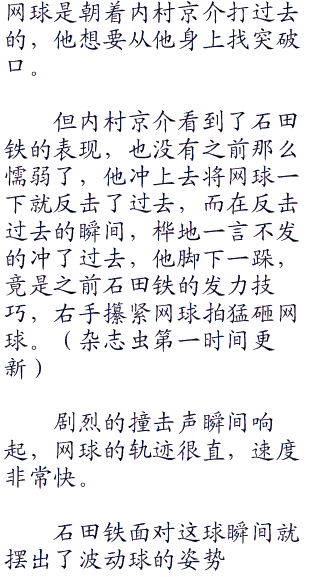 网球是朝着内村京介打过去
的，他想要从他身上找突破
口。
但内村京介看到了石田
铁的表现，也没有之前那么
懦弱了，他冲上去将网球一
下就反击了过去，而在反击
过去的瞬间，桦地一言不发
的冲了过去，他脚下一跺，
竟是之前石田铁的发力技
巧，右手攥紧网球拍猛砸网
球。（杂志虫第一时间更
新）
剧烈的撞击声瞬间响
起，网球的轨迹很直，速度
非常快。
石田铁面对这球瞬间就
摆出了波动球的姿势